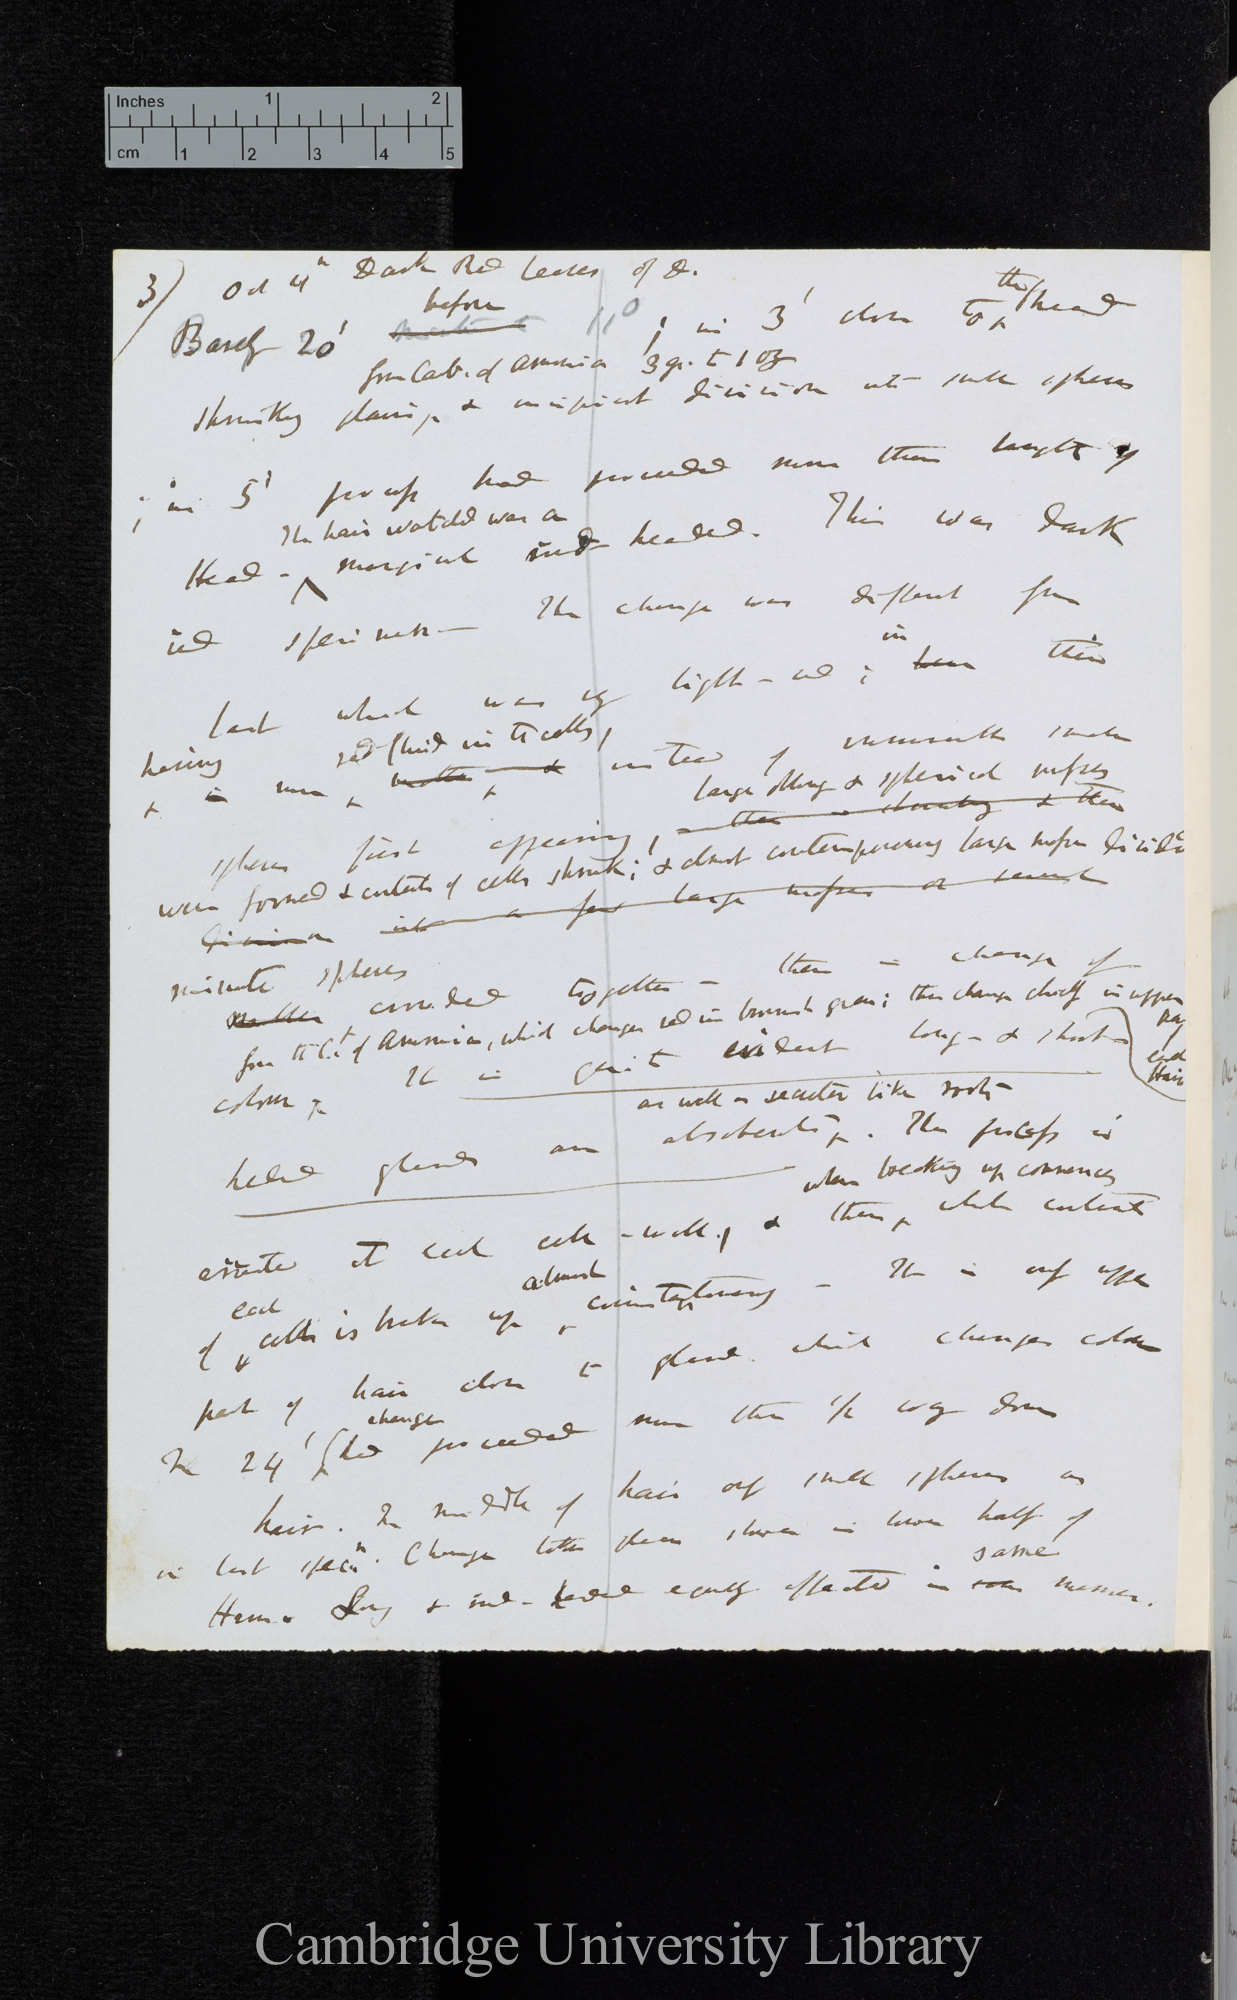 Inches 1 2
cm 1 2 3 4 5
3) Oct 4th Dark Red leaves of D.
before
Barely 20' 11° ; in 3' close to the head
from Carb. of Ammonia 3 gr. to 1 oz
shrinking plainly & incipient division into small spheres
; in 5' process had proceeded more than length of
The hair watched was a
Head - marginal headed. This was dark
red specimen - The change was different from
in
last which was light-red ; this
having red fluid in the cells,
instead of innumerable small
large oblong & spherical masses
spheres first appearing,
were formed & contents of cells shrunk; & almost contemporaneously large masses divided
into a few large masses or several
minute spheres
matter crowded together - there is change of
from the C. of Ammonia, which changes red in brownish green; this change chiefly in upper part of end Hair
colour. It is quite evident long- & short-
as well as secrete like roots
headed glands are absorbents. The process is
when breaking up commences
arrested at each cell-wall, & then, whole contents
each almost
of cells is broken up - It is only upper
part of hair close to gland which changes colour
change
In 24' had proceeded more than 1/2 way down
hair. In middle of hair only small spheres as
in last specn. Change takes place slower in lower half of
same
Hair. Long & headed equally affected in manner.
Cambridge University Library